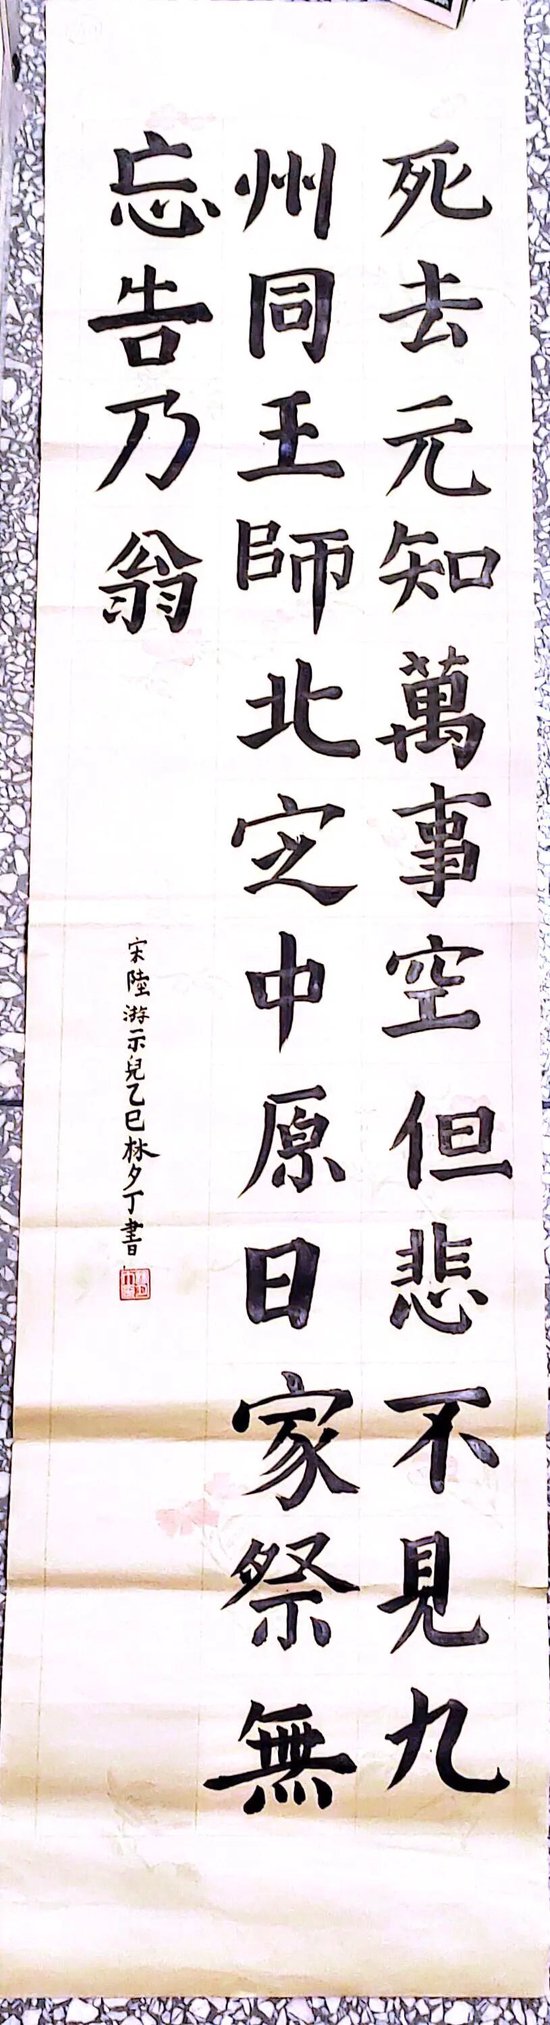 死去元知萬事空但悲不見九
州同王師北定中原日家祭無
忘告乃翁
宋陸游示兒乙巳林夕丁書